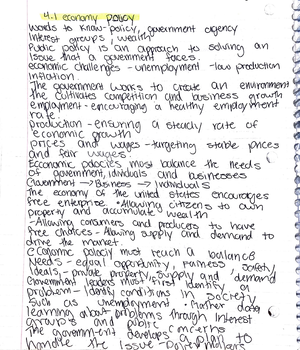 4.1 economy policy
Words to know: policy, government agency
Interest groups, wealth
Public policy is an approach to solving an
issue that a government faces.
economic challenges - unemployment - low production
Inflation.
The government works to create an environment
the cultivates competition and business growth
employment - encouraging a healthy employment
rate.
production - ensuring a steady rate of
economic growth
prices and wages - targeting stable prices
and fair wages.
Economic policies must balance the needs
of government, individuals and businesses
Government → Business → Individuals
The economy of the united states encourages
free enterprise • Allowing citizens to own
property and accumulate wealth
- Allowing consumers and producers to have
free choices - Allowing supply and demand to
drive the market.
economic policy must reach a balance
Needs - equal opportunity, fairness safety
Ideals, - private property supply and demand
Government leaders must first identify a
problem - Identify conditions in society
such as unemployment • Gather data
learning about problems through interest
groups and public concerns
The government develops a plan to
handle the issue - Policy Makers